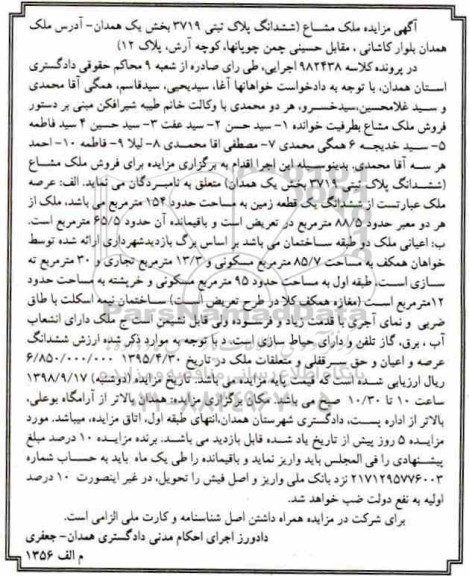 آگهی مزایده ملک مشاع (ششدانگ پلاک ثبتی ۳۷۱۹ بخش یک همدان- آدرس ملک
همدان بلوار کاشانی ، مقابل حسینی چمن چوپانها، کوچه آرش، پلاک ۱۲)
در پرونده کلاسه ۹۸۲۴۳۸ اجرایی، طی رای صادره از شعبه ۹ محاکم حقوقی دادگستری
استان همدان، با توجه به دادخواست خواهانها آغا، سیدیحیی، سیدقاسم، همگی آقا محمدی
و سید غلامحسین،سیدخسرو، هر دو محمدی با وکالت خانم طیبه شیرافکن مبنی بر دستور
فروش ملک مشاع بطرفیت خوانده ۱- سید حسن ۲- سید عفت ۳- سید حسین ۴ سید فاطمه
۵- سید خدیجه ۶ همگی محمدی ۷- مصطفی اقا محمدی ۸- لیلا ۹- فاطمه ۱۰- احمد
هر سه آقا محمدی. بدینوسیله این اجرا اقدام به برگزاری مزایده برای فروش ملک مشاع
(ششدانگ پلاک ثبتی ۳۷۱۹ بخش یک همدان) متعلق به نامبردگان می نماید. الف: عرصه
ملک عبارتست از ششدانگ یک قطعه زمین به مساحت حدود ۱۵۴ مترمربع می باشد، ملک از
هر دو معبر حدود ۸۸/۵ مترمربع در تعریض است و باقیمانده آن حدود ۶۵/۵ مترمربع است.
ب: اعیانی ملک دو طبقه ساختمان می باشد بر اساس برگ بازدیدشهرداری ارائه شده توسط
خواهان همکف به مساحت ۸۵/۷ مترمربع مسکونی و ۱۳/۳ مترمربع تجاری و ۳۰ مترمربع نه
سازی است، طبقه اول به مساحت حدود ۹۵ مترمربع مسکونی و خرپشته به مساحت حدود
۱۲مترمربع است (مغازه همکف کلا در طرح تعریض است) ساختمان نیمه اسکلت با طاق
ضربی و نمای آجری با قدمت زیاد و فرسوده ولی قابل نشیمن است ج ملک دارای انشعاب
آب، برق، گاز تلفن و دارای حیاط سازی است. د با توجه به موارد ذکر شده ارزش ششدانگ
عرصه و اعیان و حق سرقفلی و متعلقات ملک در تاریخ ۱۳۹۵/۴/۳۰ ۶/۸۵۰/۰۰۰/۰۰۰
ریال ارزیابی شده است که قیمت پایه مزایده می باشد. تاریخ مزایده (دوشنبه) ۱۳۹۸/۹/۱۷
ساعت ۱۰ تا ۱۰/۳۰ صبح می باشد مکان برگزاری مزایده: همدان بالاتر از آرامگاه بوعلی،
بالاتر از اداره پست، دادگستری شهرستان همدان،انتهای طبقه اول، اتاق مزایده، میباشد. مورد
مزایده ۵ روز پیش از تاریخ یاد شده قابل بازدید می باشد. برنده مزایده ۱۰ درصد مبلغ
پیشنهادی را فی المجلس باید واریز نماید و باقیمانده را طی یک ماه باید به حساب شماره
۲۱۷۱۲۹۵۷۷۶۰۰۳ نزد بانک ملی واریز و اصل فیش را تحویل، در غیر اینصورت ۱۰ درصد
اولیه به نفع دولت ضب خواهد شد.
برای شرکت در مزایده همراه داشتن اصل شناسنامه و کارت ملی الزامی است.
دادورز اجرای احکام مدنی دادگستری همدان- جعفری
م الف ۱۳۵۶